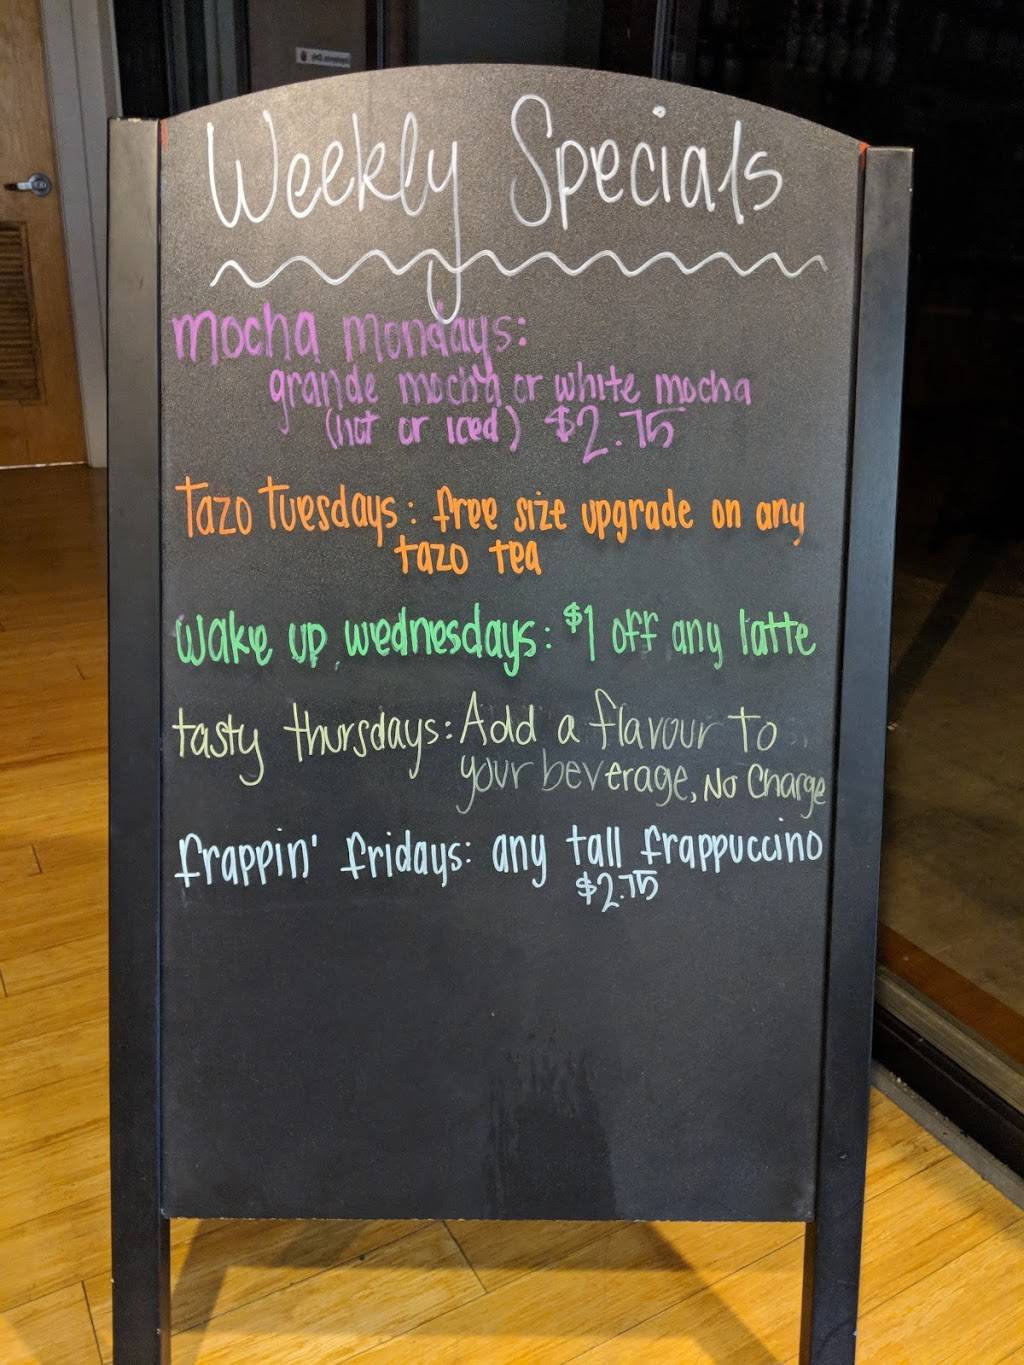 Weekly Specials
mocha mondays:
grande mocha or white mocha
(hot or iced) $2.75
tazo tuesdays: free size upgrade on any
tazo tea
wake up wednesdays: $1 off any latte
tasty thursdays: Add a flavour to
your beverage, No Charge
frappin' fridays: any tall frappuccino
$2.75